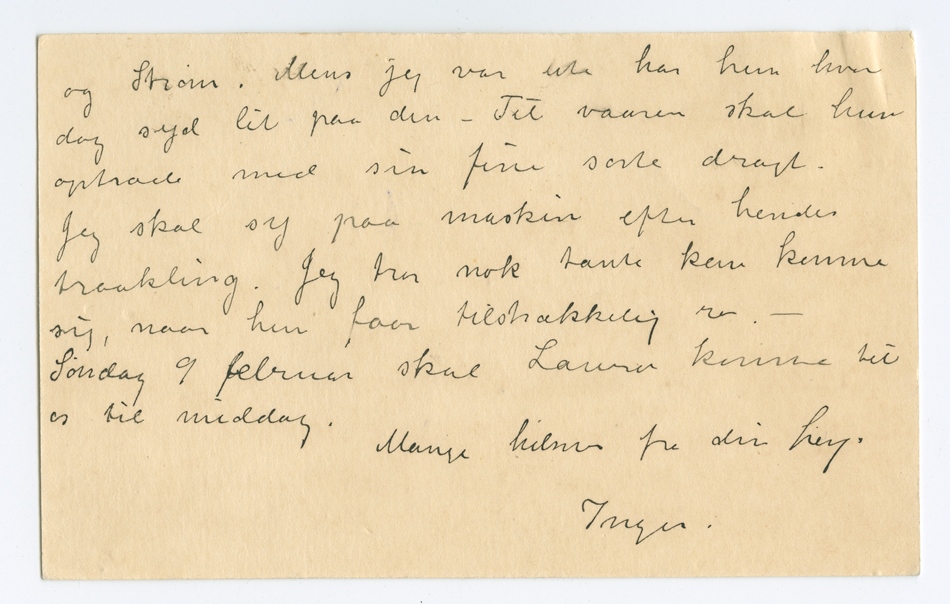 og Strøm. Mens jeg var ute har hun hver
dag syd lit paa den – Til vaaren skal hun
optræde med sin fine sorte dragt.
Jeg skal sy paa maskin efter hendes
traakling. Jeg tror nok tante kan komme
sig, naar hun faar tilstrækkelig ro. —
Søndag 9 februar skal Laura komme til
os til middag.
Mange hilsner fra din heng.
Inger.